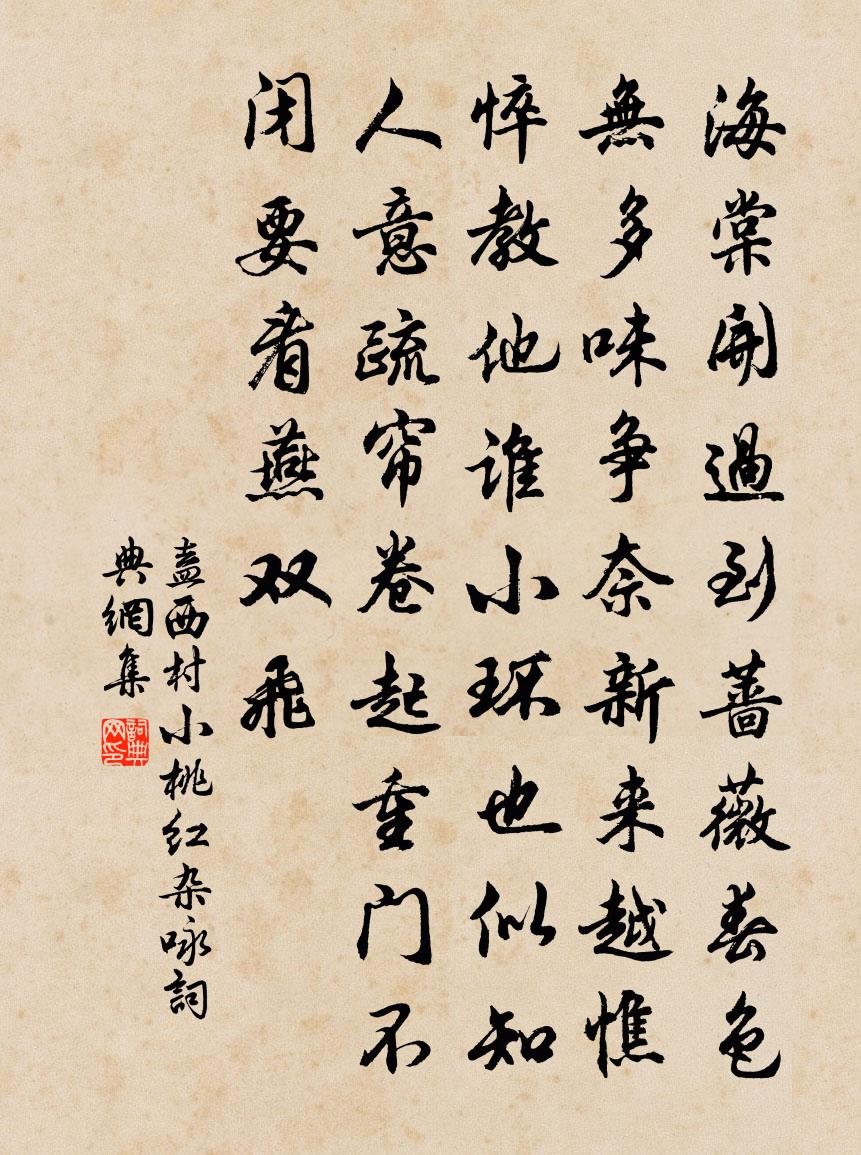 海棠開過到薔薇春色
無多味爭奈新来越憔
悴教他誰小环也似知
人意疏帘卷起重门不
闭要看燕双飛
盍西村小桃红杂咏詞
典網集
詞典网印